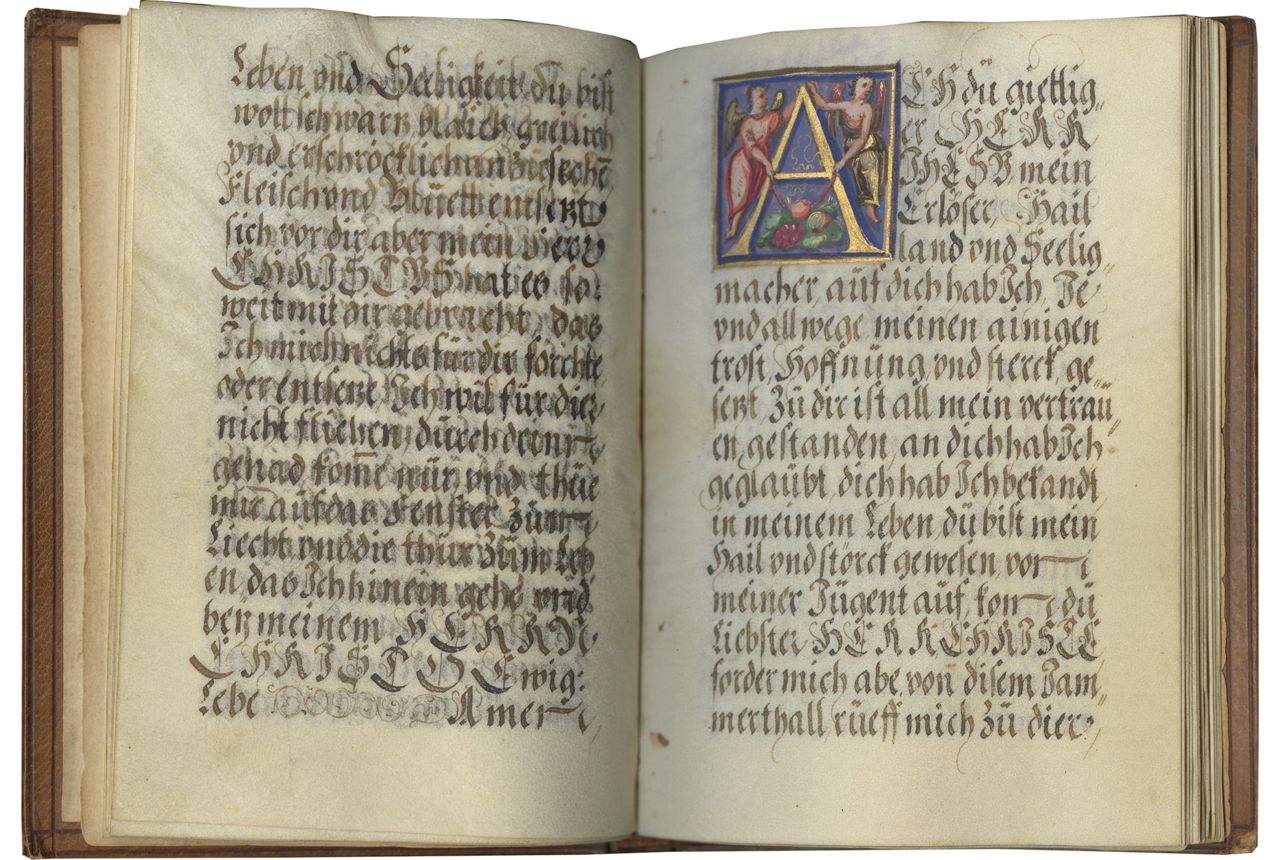 Leben, vnd Seeligkeit, du bist
woll schwartz blaich greilich
vnd erschröcklich an Zůsechē
Fleisch vnd Blůett entsetzt
sich vor dir aber mein Herr
CHRISTVS hat es so
weit mit dir gebracht, das
Ich mich nichts für dir förchte
oder entsetze, Ich wil für dier
nicht fliehen, dürch deine
genad kom̄e nür vnd thüe
mir auf das Fenster zum
Liecht vnd die thür Züm Leb
en, das Ich hinein gehe vnd
bey meinem HERRN
CHRISTO Ewig:
Lebe Amen
ACH dü giettig„
er HERR
IHESV mein
Erlöser, Hail
land vnd Seelig„
macher, aüf dich hab Ich, Je
vnd allwege meinen ainigen
trost, Hoffnüng, vnd sterck, ge„
setzt, Zü dir ist all mein vertraü„
en, gestanden, an dich hab Ich
geglaübt, dich hab Ich bekandt,
in meinem Leben, dü bist mein
Hail vnd störck gewesen, von
meiner Jügent aüf, kom dü
Liebster HERR CHRISTE
forder mich abe, von disem Jam„
merthall, rüeff mich Zü dier